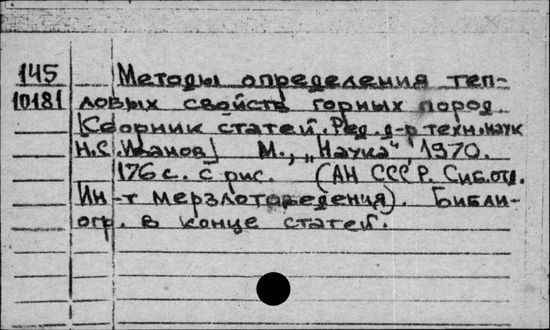 145 Методы определения теп-
10181 ловых свойств горных пород
[Сборник статей. Ред. д-р техн. наук
Н.С. Иванов] М., „Наука", 1970.
176 с. с рис. (АН СССР. Сиб. отд.
Ин-т мерзлотоведения). Библи-
огр. в конце статей.